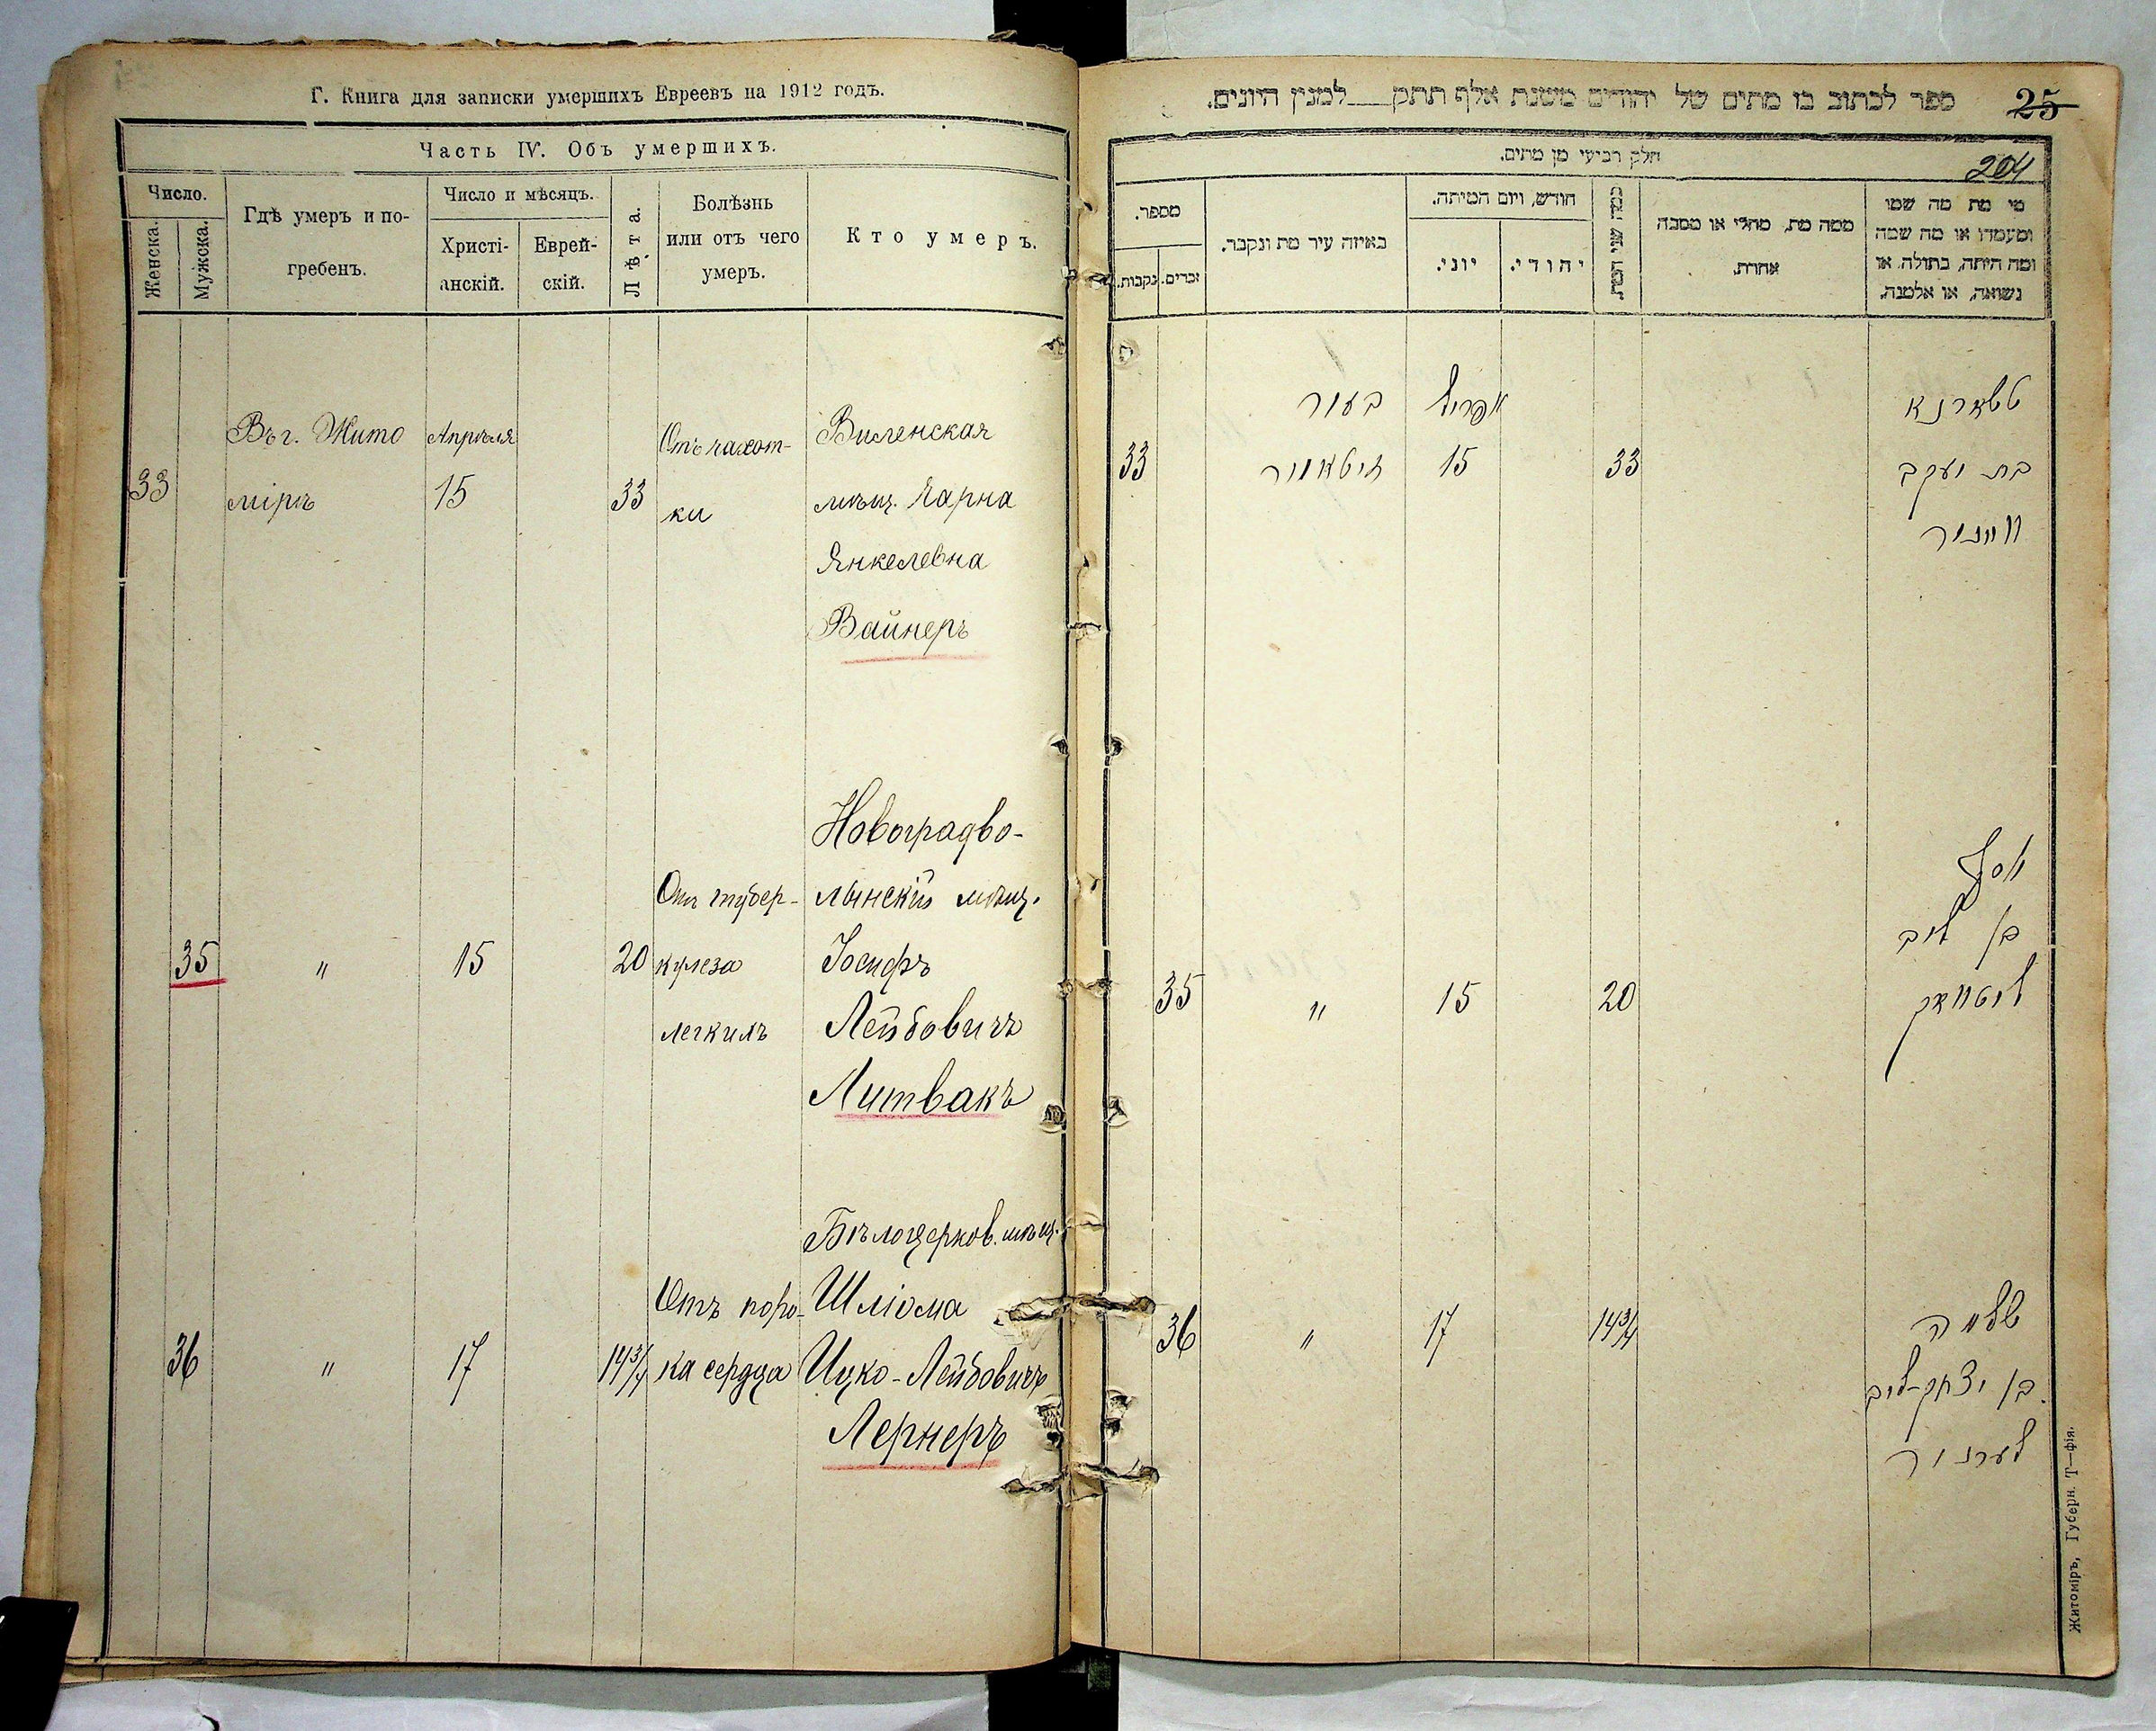 Г. Книга для записки умершихъ Евреевъ на 1912 годъ.
Часть IV. Объ умершихъ.
Число.
Женска.
Мужска.
Гдѣ умеръ и по-
гребенъ.
Число и мѣсяцъ.
Христі-
анскій.
Еврей-
скій.
Лѣта.
Болѣзнь
или отъ чего
умеръ.
Кто умеръ.
33
Въ г. Жито
міръ
Апрѣля
15
33
Отъ чахот-
ки
Виленская
мѣщ. Чарна
Янкелевна
Вайнеръ
35
"
15
20
Отъ тубер-
кулеза
легкихъ
Новоградво-
лынскій мѣщ.
Іосифъ
Лейбовичъ
Литвакъ
36
"
17
14 3/4
Отъ поро-
ка сердца
Бѣлоцерков. мѣщ.
Шліома
Ицко-Лейбовичъ
Лернеръ
ספר לכתוב בו מתים של יהודים משנת אלף תתק למנין היונים.
25
204
חלק רביעי מן מתים.
מי מת מה שמו
ומעמדו או מה שמה
ומה היתה, בתולה או
נשואה, או אלמנה.
ממה מת, מחלי או מסבה
אחרת.
כמה שני המת
חודש, ויום המיתה.
יהודי.
יוני.
באיזה עיר מת ונקבר.
מספר.
זכרים.
נקבות.
טשארנא
בת יעקב
ווײנער
33
אפריל
15
בעיר
זיטאמיר
33
יוסף
בן ליב
ליטוואק
20
15
"
35
שלמה
בן יצחק-ליב
לערנער
14 3/4
17
"
36
Житоміръ, Губерн. Т—фія.